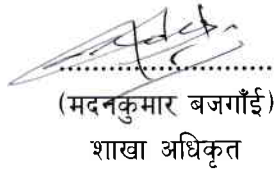 (मदनकुमार बजगाँई)
शाखा अधिकृत